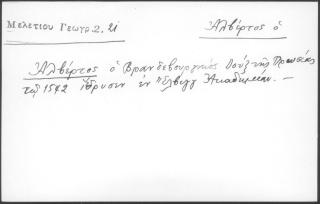 Μελετίου Γεωγρ. 2. 21
Ἀλβέρτος ὁ
Ἀλβέρτος ὁ Βρανδεβουργικός Δούξ τῆς Πρωσίας
τῷ 1542 ἵδρυσεν ἐν Ἔλβιγγ Ἀκαδημίαν. —